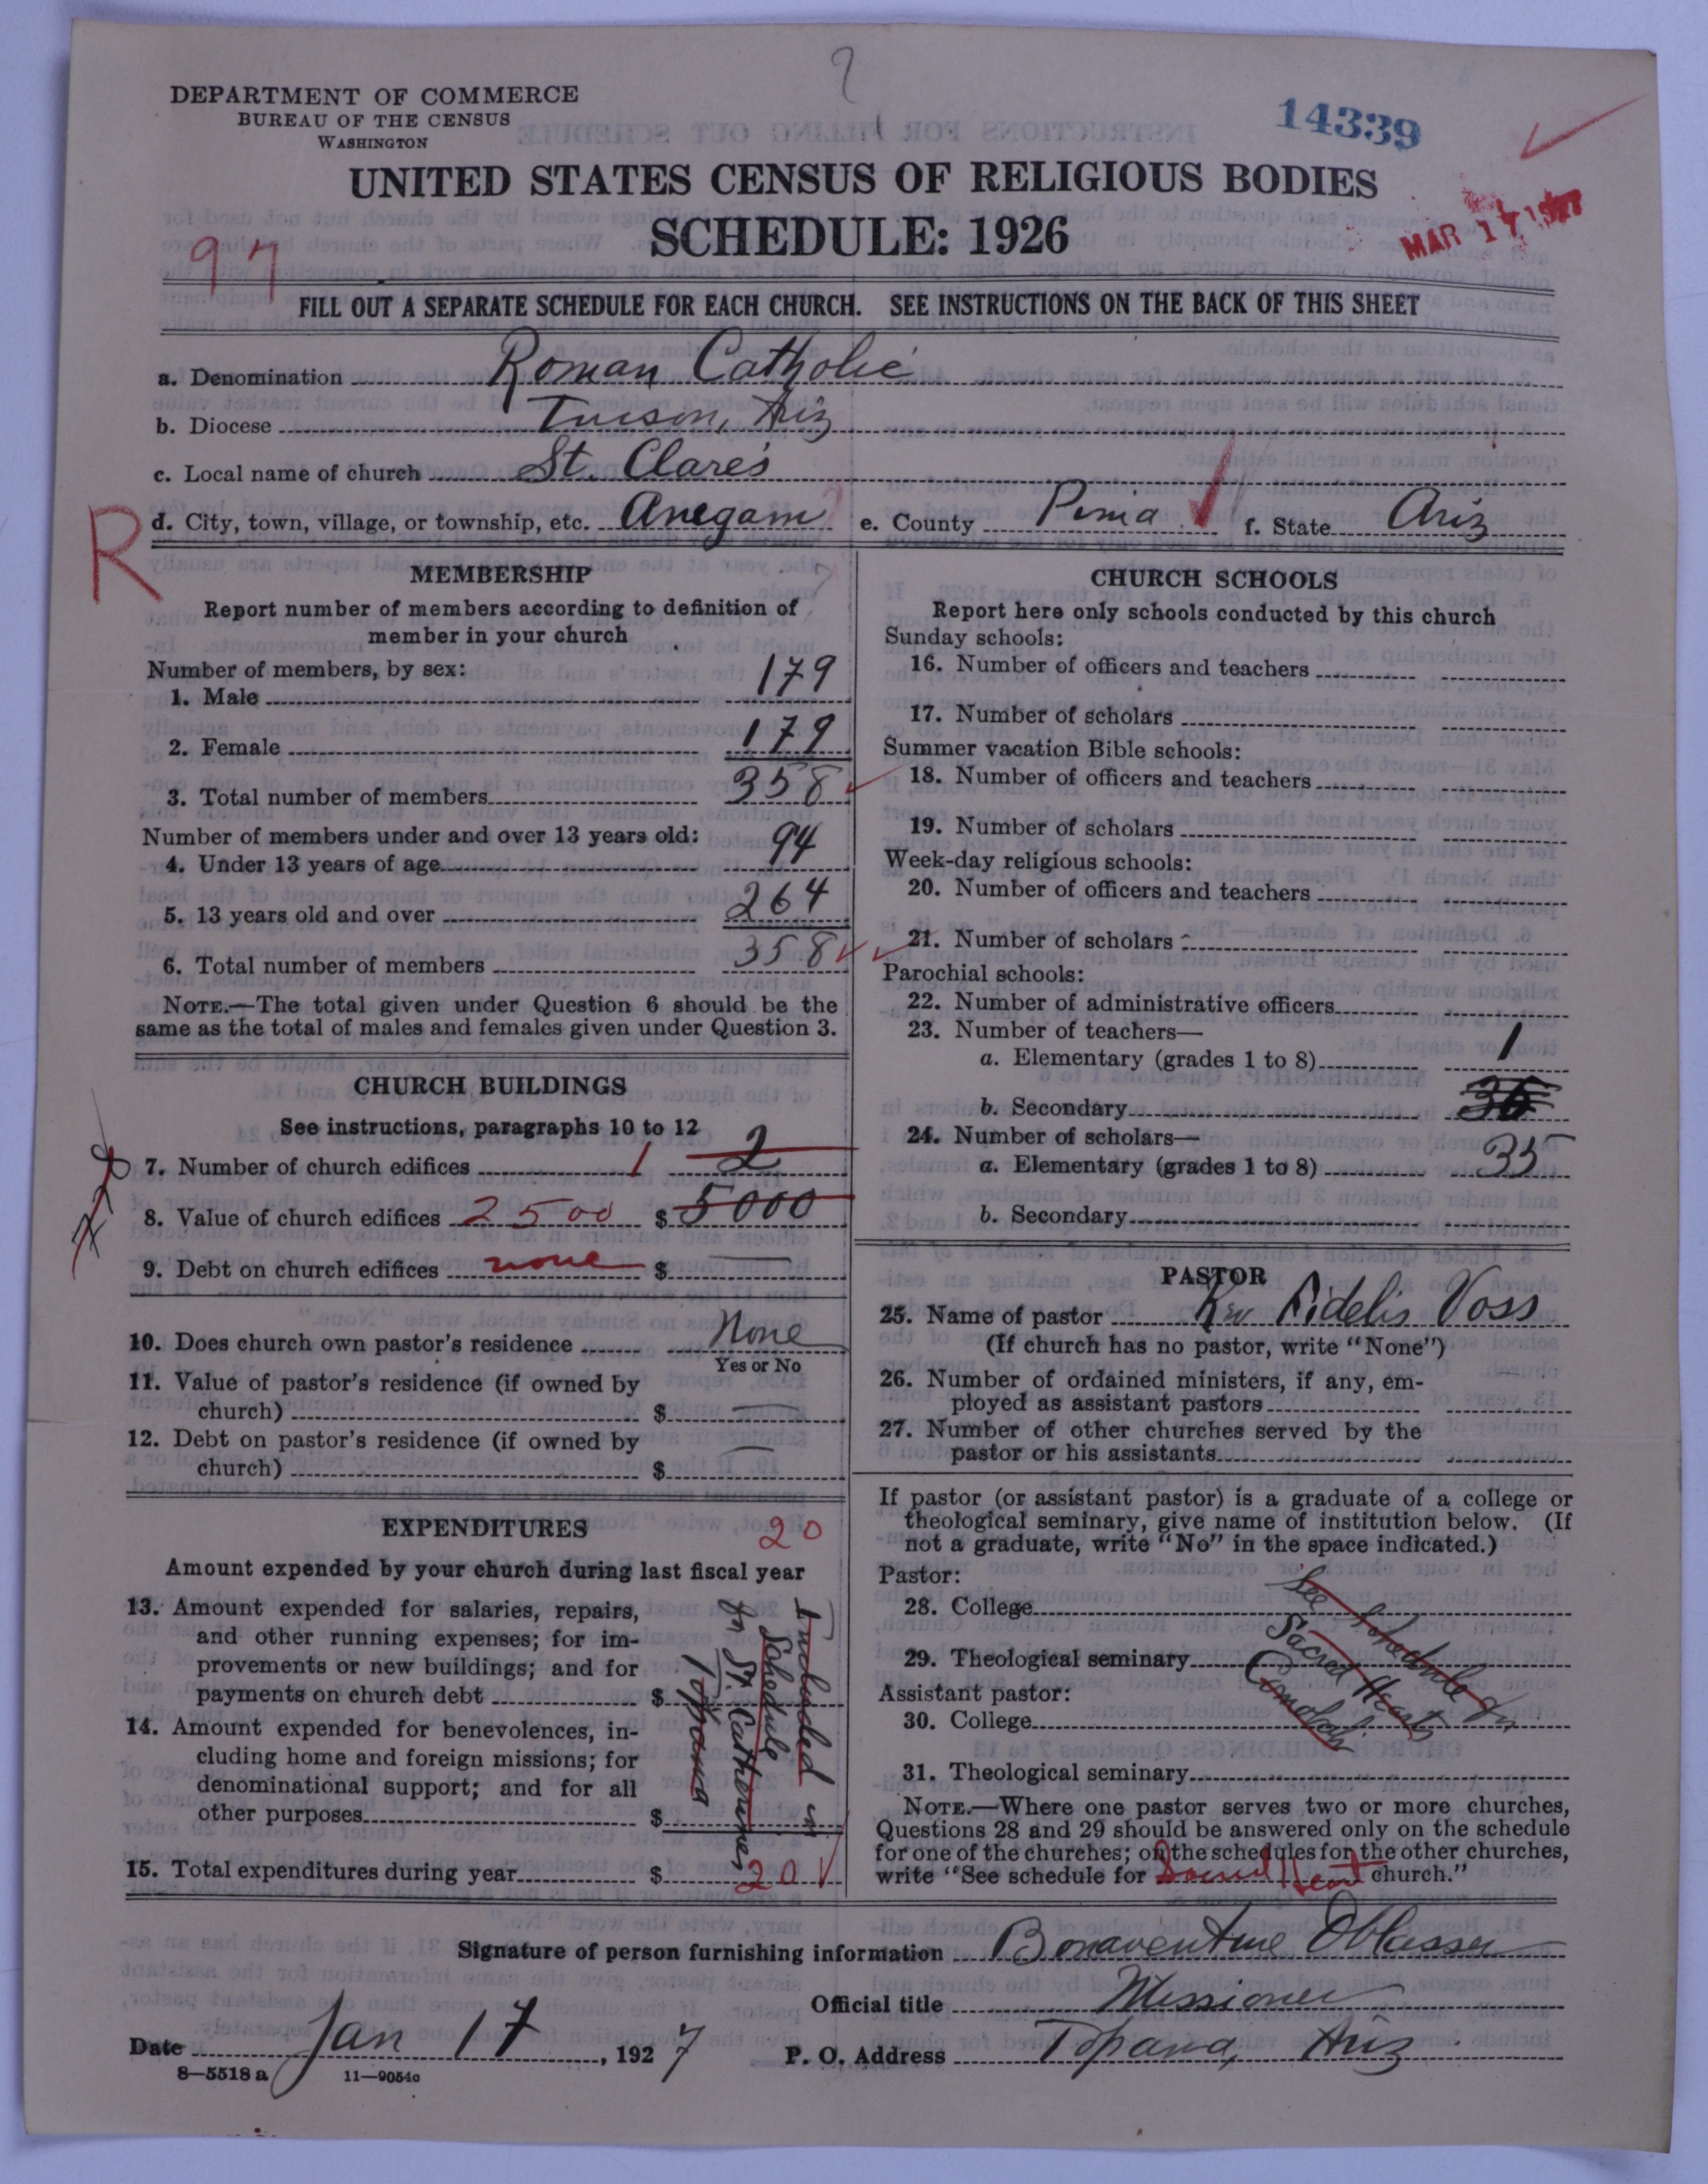 DEPARTMENT OF COMMERCE
BUREAU OF THE CENSUS
WASHINGTON
14339
UNITED STATES CENSUS OF RELIGIOUS BODIES
SCHEDULE: 1926
MAR 17 1927
97
FILL OUT A SEPARATE SCHEDULE FOR EACH CHURCH. SEE INSTRUCTIONS ON THE BACK OF THIS SHEET
a. Denomination Roman Catholic
b. Diocese Tucson, Ariz
c. Local name of church St. Clare's
R
d. City, town, village, or township, etc. Anegam e. County Pima f. State Ariz
MEMBERSHIP
Report number of members according to definition of
member in your church
Number of members, by sex:
1. Male 179
2. Female 179
3. Total number of members 358
Number of members under and over 13 years old:
4. Under 13 years of age 94
5. 13 years old and over 264
6. Total number of members 358
NOTE.—The total given under Question 6 should be the
same as the total of males and females given under Question 3.
CHURCH BUILDINGS
See instructions, paragraphs 10 to 12
7. Number of church edifices 1 2
8. Value of church edifices 2500 $ 5000
9. Debt on church edifices none $
10. Does church own pastor's residence None
Yes or No
11. Value of pastor's residence (if owned by
church) $
12. Debt on pastor's residence (if owned by
church) $
EXPENDITURES
20
Amount expended by your church during last fiscal year
13. Amount expended for salaries, repairs,
and other running expenses; for im-
provements or new buildings; and for
payments on church debt $
14. Amount expended for benevolences, in-
cluding home and foreign missions; for
denominational support; and for all
other purposes $
Included in
Schedule
for St. Catherines
Topawa
15. Total expenditures during year $ 20
CHURCH SCHOOLS
Report here only schools conducted by this church
Sunday schools:
16. Number of officers and teachers
17. Number of scholars
Summer vacation Bible schools:
18. Number of officers and teachers
19. Number of scholars
Week-day religious schools:
20. Number of officers and teachers
21. Number of scholars
Parochial schools:
22. Number of administrative officers
23. Number of teachers—
a. Elementary (grades 1 to 8) 1
b. Secondary
24. Number of scholars—
a. Elementary (grades 1 to 8) 35
b. Secondary
PASTOR
25. Name of pastor Rev Fidelis Voss
(If church has no pastor, write "None")
26. Number of ordained ministers, if any, em-
ployed as assistant pastors
27. Number of other churches served by the
pastor or his assistants
If pastor (or assistant pastor) is a graduate of a college or
theological seminary, give name of institution below. (If
not a graduate, write "No" in the space indicated.)
Pastor:
28. College
29. Theological seminary
Assistant pastor:
30. College
31. Theological seminary
See Schedule for
Sacred Heart
NOTE.—Where one pastor serves two or more churches,
Questions 28 and 29 should be answered only on the schedule
for one of the churches; on the schedules for the other churches,
write "See schedule for Sacred Heart church."
Signature of person furnishing information Bonaventure Oblasser
Official title Missioner
Date Jan 17, 1927 P. O. Address Topawa, Ariz
8—5518 a 11—9054c